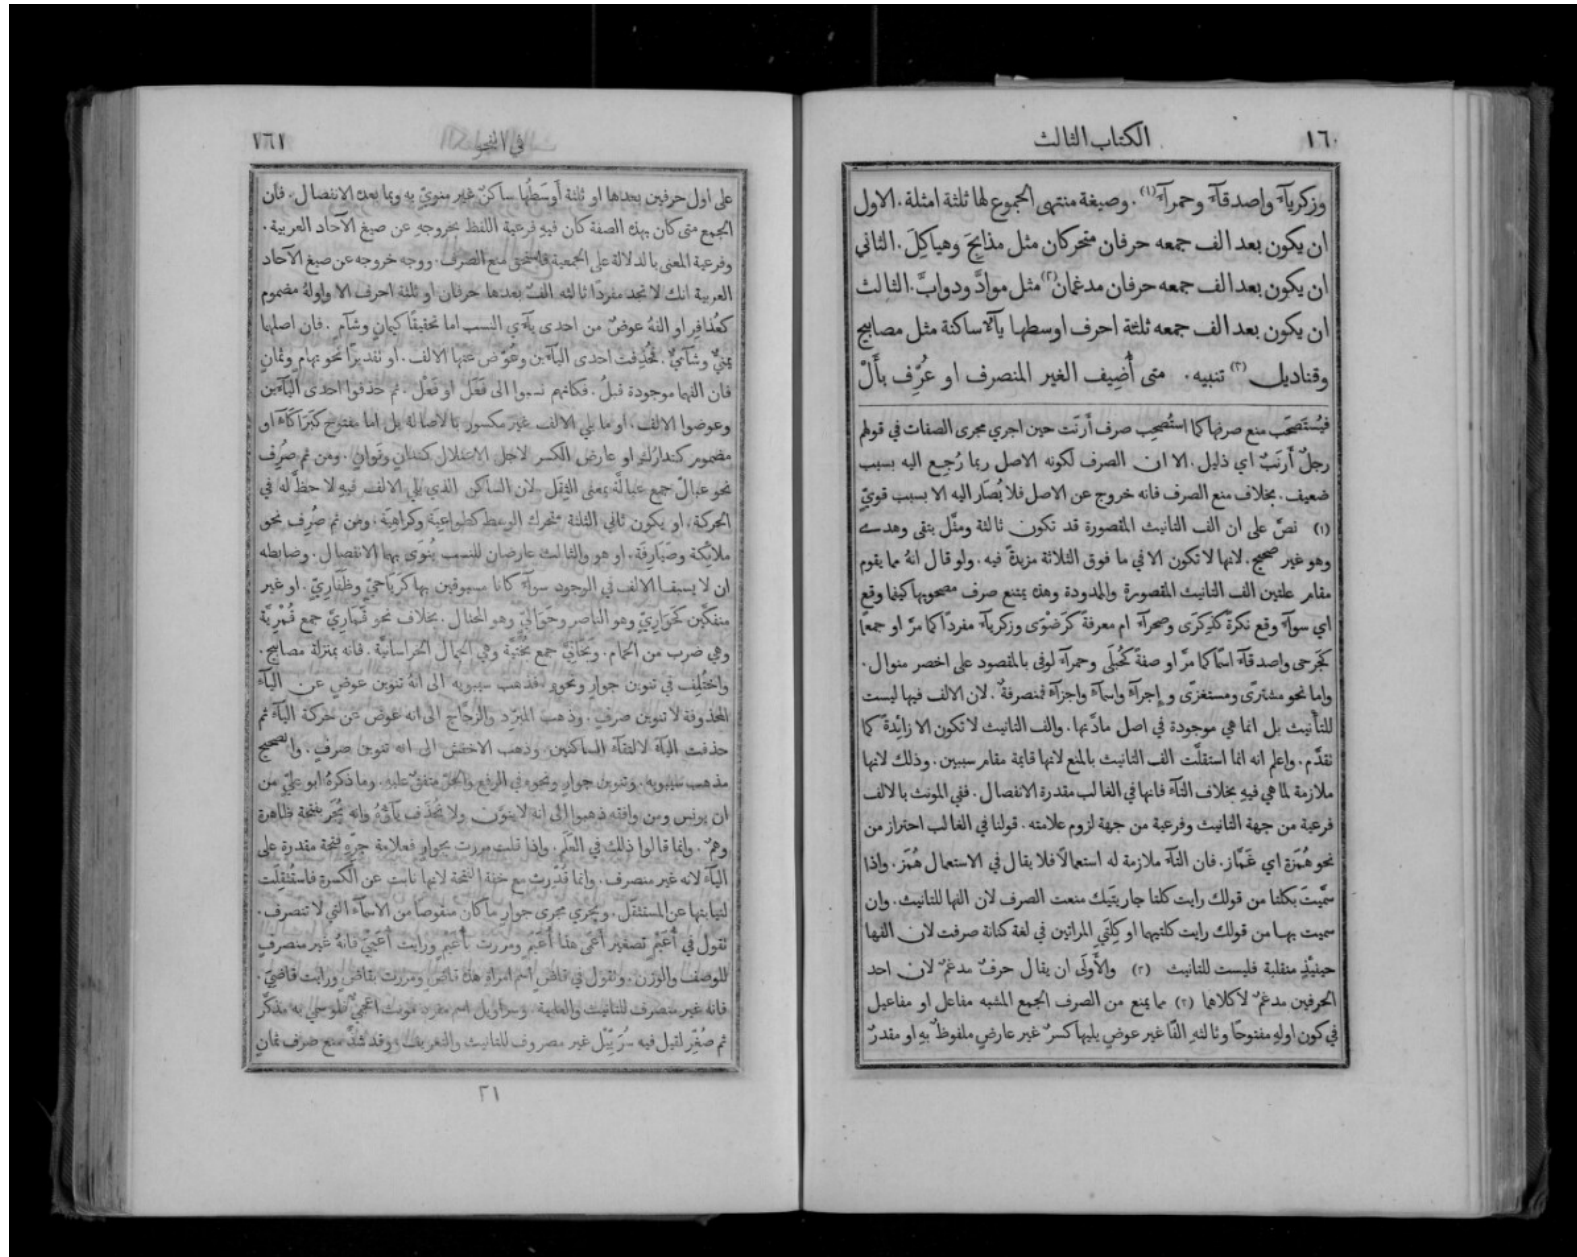 ١٦٠
الكتاب الثالث
وزكرياۤء واصدقاۤء وحمراۤء (١) . وصيغة منتهى الجموع لها ثلثة امثلة . الاول
ان يكون بعد الف جمعه حرفان متحركان مثل مذابِحَ وهياكِلَ . الثاني
ان يكون بعد الف جمعه حرفان مدغمان (٢) مثل موادَّ ودوابَّ . الثالث
ان يكون بعد الف جمعه ثلثة احرف اوسطها ياۤء ساكنة مثل مصابيح
وقناديل (٣) تنبيه . متى أُضِيف الغير المنصرف او عُرِّف بأَلْ
فيُستَصحَب منع صرفها كما استُصحِب صرف أَرنَب حين اجري مجرى الصفات في قولهم
رجلٌ أَرنَبٌ اي ذليل . الا ان الصرف لكونه الاصل ربما رُجِع اليه بسبب
ضعيف . بخلاف منع الصرف فانه خروج عن الاصل فلا يُصَار اليه الا بسبب قويّ
(١) نصَّ على ان الف التانيث المقصورة قد تكون ثالثة ومثَّل بتقى وهدى
وهو غير صحيح . لانها لا تكون الا في ما فوق الثلاثة مزيدةً فيه . ولو قال انهُ مما يقوم
مقام علتين الف التانيث المقصورة والمدودة وهذه يمتنع صرف مصحوبها كيفما وقع
اي سواۤء وقع نكرةً كذِكرَى وصحراۤء ام معرفةً كرَضْوَى وزكرياۤء مفردًا كما مرَّ او جمعًا
كجَرحى واصدقاۤء اسمًا كما مرَّ او صفةً كحُبلَى وحمراۤء لوفى بالمقصود على اخصر منوال .
واما نحو مشترًى ومستغزًى و إجراۤء واسماۤء واجزاۤء فمنصرفةٌ . لان الالف فيها ليست
للتأنيث بل انما هي موجودة في اصل مادّتها . والف التانيث لا تكون الا زايدةً كما
تقدَّم . واعلم انه انما استقلَّت الف التانيث بالمنع لانها قايمة مقام سببين . وذلك لانها
ملازمة لما هي فيهِ بخلاف التاۤء فانها في الغالب مقدرة الانفصال . ففي المونث بالالف
فرعية من جهة التانيث وفرعية من جهة لزوم علامته . قولنا في الغالب احتراز من
نحو هُمَزة اي غَمَّاز . فان التاۤء ملازمة له استعمالًا فلا يقال في الاستعمال هُمَز . واذا
سمَّيتَ بكلتا من قولك رايت كلتا جاريتَيك منعت الصرف لان الفها للتانيث . وان
سميت بها من قولك رايت كلتيهما او كِلتَيِ المراتين في لغة كنانة صرفت لان الفها
حينيذٍ منقلبة فليست للتانيث (٢) والأَولَى ان يقال حرفٌ مدغمٌ لان احد
الحرفين مدغمٌ لا كلاهما (٣) مما يمنع من الصرف الجمع المشبه مفاعل او مفاعيل
في كون اولهِ مفتوحًا وثالثهِ الفًا غير عوضٍ يليها كسرٌ غير عارضٍ ملفوظٌ بهِ او مقدرٌ
في النحو
١٦١
على اول حرفين بعدها او ثلثة أَوسَطُها ساكنٌ غير منويٍّ به وبما بعدهُ الانفصال . فان
الجمع متى كان بهذه الصفة كان فيهِ فرعية اللفظ بخروجهِ عن صيغ الآحاد العربية .
وفرعية المعنى بالدلالة على الجمعية فاستحق منع الصرف . ووجه خروجه عن صيغ الآحاد
العربية انك لا تجد مفردًا ثالثه الفٌ بعدها حرفان او ثلثة احرف الا واولهُ مضموم
كعُذافِر او الفهُ عوضٌ من احدى ياۤءي النسب اما تحقيقًا كيمانٍ وشآمٍ . فان اصلهما
يمنيٌّ وشاميٌّ . فحُذِفت احدى الياۤءين وعُوِّض عنها الالف . او تقديرًا نحو تهامٍ وثمانٍ
فان الفهما موجودة قبلُ . فكانهم نسبوا الى فَعَل او فَعْل . ثم حذفوا احدى الياۤءين
وعوضوا الالف . او ما يلي الالف غير مكسور بالاصالة بل اما مفتوح كبَرَاكَاۤء او
مضموم كتدارُك او عارض الكسر لاجل الاعتلال كتدانٍ وتوانٍ . ومن ثم صُرِف
نحو عبالّ جمع عبالَّة بمعنى الثِقَل لان الساكن الذي يلي الالف فيهِ لا حظَّ له في
الحركة . او يكون ثاني الثلثة متحرك الوسط كطواعِيَة وكراهِيَة . ومن ثم صُرِف نحو
ملائِكة وصَيَارِفَة . او هو والثالث عارضان للنسب يُنوَى بهما الانفصال . وضابطه
ان لا يسبقا الالف في الوجود سواۤء كانا مسبوقين بها كرَبَاحيٍّ وظَفَاريٍّ . او غير
منفكَّين كحَوَاريٍّ وهو الناصر وحَوَاليٍّ وهو المحتال . بخلاف نحو قَمَاريَّ جمع قُمْرِيَّة
وهي ضرب من الحمام . وبَخَاتيَّ جمع بُخْتيَّة وهي الجمال الخراسانيَّة . فانه بمنزلة مصابيح .
واختُلِف في تنوين جوارٍ ونحوهِ فذهب سيبويه الى انهُ تنوين عوضٍ عن الياۤء
المحذوفة لا تنوين صرفٍ . وذهب المبرّد والزجَّاج الى انه عوض عن حركة الياۤء ثم
حذفت الياۤء لالتقاۤء الساكنين . وذهب الاخفش الى انه تنوين صرفٍ . والصحيح
مذهب سيبويه . وتنوين جوارٍ ونحوه في الرفع والجرّ متفقٌ عليه . وما ذكرهُ ابو عليّ من
ان يونس ومن وافقه ذهبوا الى انه لا ينوَّن ولا تُحذَف ياۤءهُ وانه يُجَرّ بفتحة ظاهرة
وهمٌ . وانما قالوا ذلك في العَلَم . واذا قلت مررت بجوارٍ فعلامة جرِّهِ فتحة مقدرة على
الياۤء لانه غير منصرف . وانما قُدِّرت مع خفة الفتحة لانها نابت عن الكسرة فاستُثقِلَت
لنيابتها عن المستثقَل . ويجري مجرى جوارٍ ما كان منقوصًا من الاسماۤء التي لا تنصرف .
تقول في أُعَيْمٍ تصغير أَعمَى هذا أُعَيْمٍ ومررت بأُعَيْمٍ ورايت أُعَيْمِيَ فانهُ غير منصرفٍ
للوصف والوزن . وتقول في قاضٍ اسم امراةٍ هذه قاضٍ ومررت بقاضٍ ورايت قاضيَ .
فانه غير منصرف للتانيث والعلمية . وسراويل اسم مفرد مونث اعجميّ فلو سمي به مذكَّر
ثم صُغِّر لقيل فيه سُرَيِّيل غير مصروف للتانيث والتعريف . وقد شذَّ منع صرف ثمانٍ
٢١